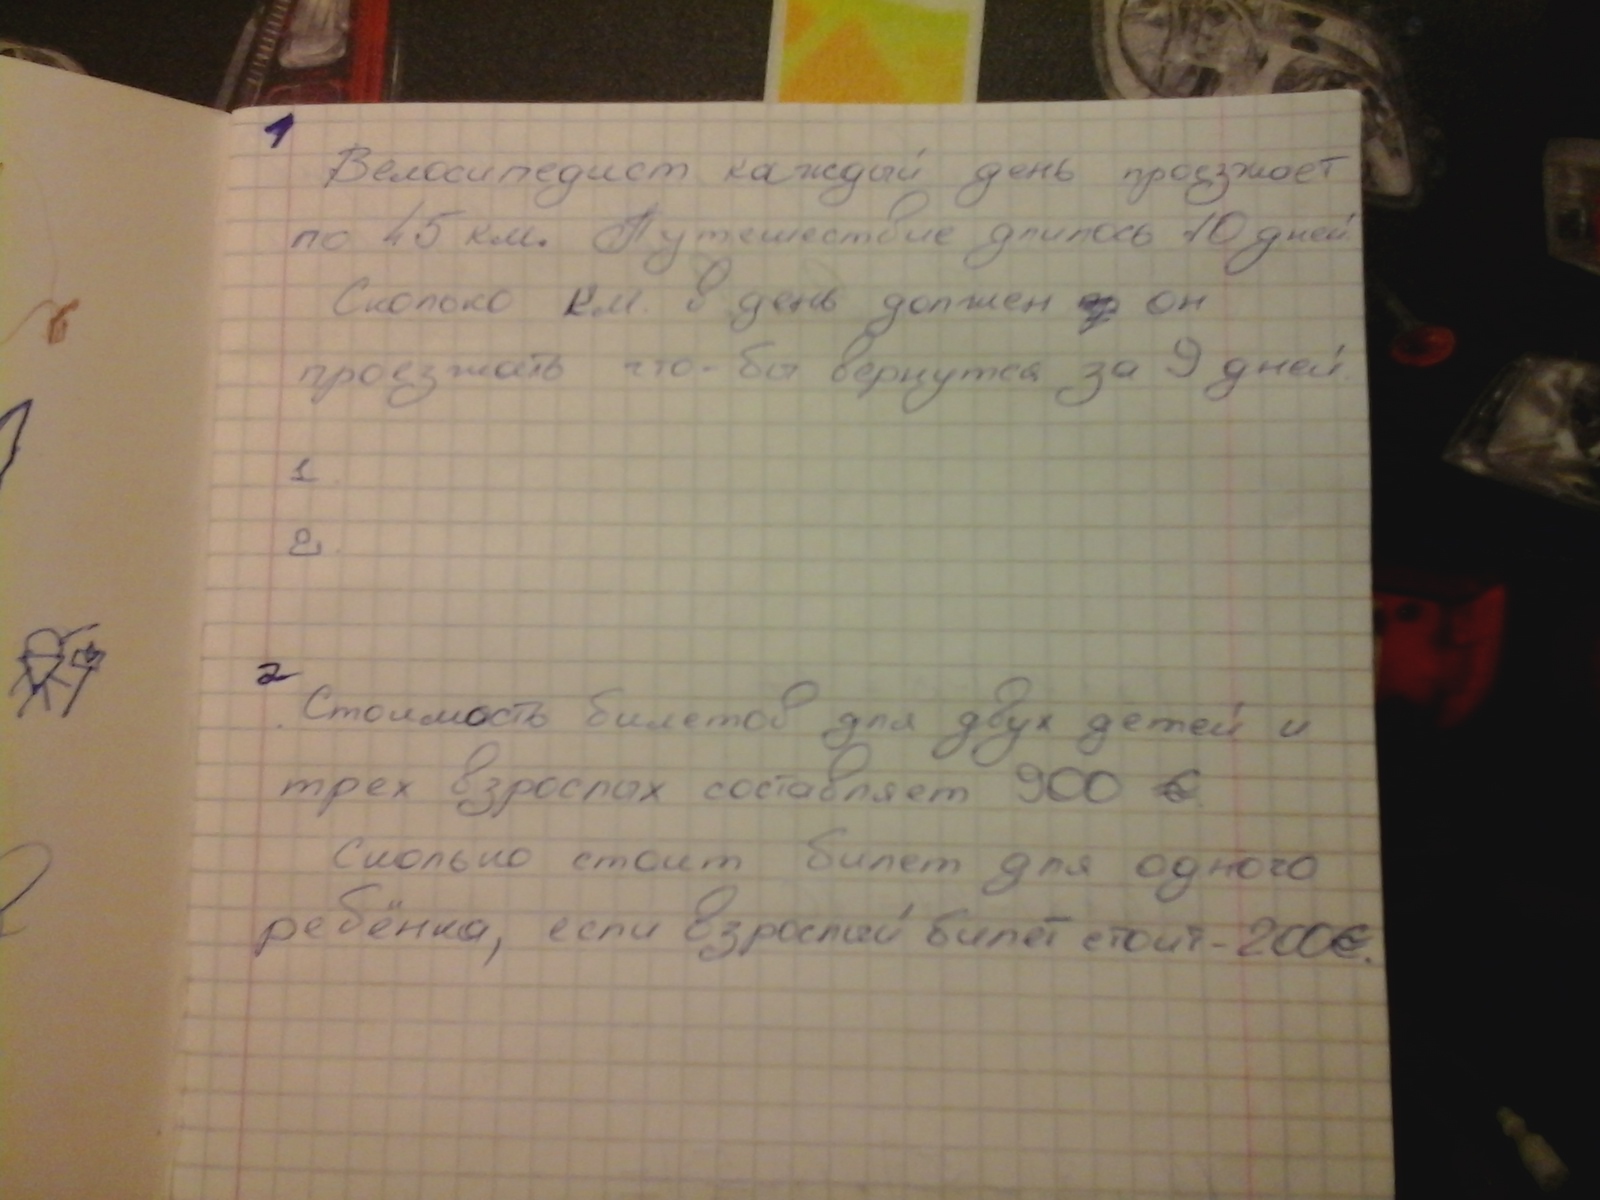 1
Велосипедист каждый день проезжает
по 45 км. Путешествие длилось 10 дней
Сколько км. в день должен он
проезжать что-бы вернутся за 9 дней.
1.
2.
2
Стоимость билетов для двух детей и
трех взрослых составляет 900 €
Сколько стоит билет для одного
ребёнка, если взрослый билет стоит - 200€.